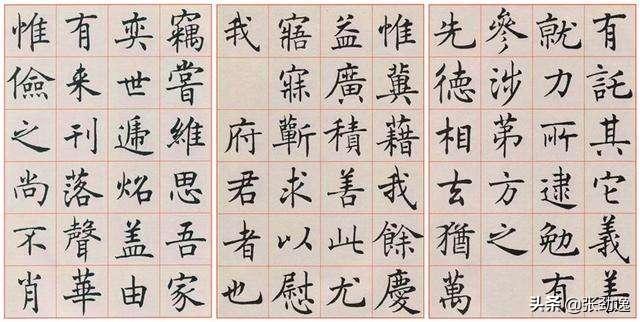 有託其它義美
就力所逮勉有
參涉第方之
先德相去猶萬
惟冀藉我餘慶
益廣積善此尤
寤寐蘄求以慰
我 府君者也
竊嘗維思吾家
奕世遞炤蓋由
有来刊落聲華
惟儉之尚不肖
头条 @张劲逸